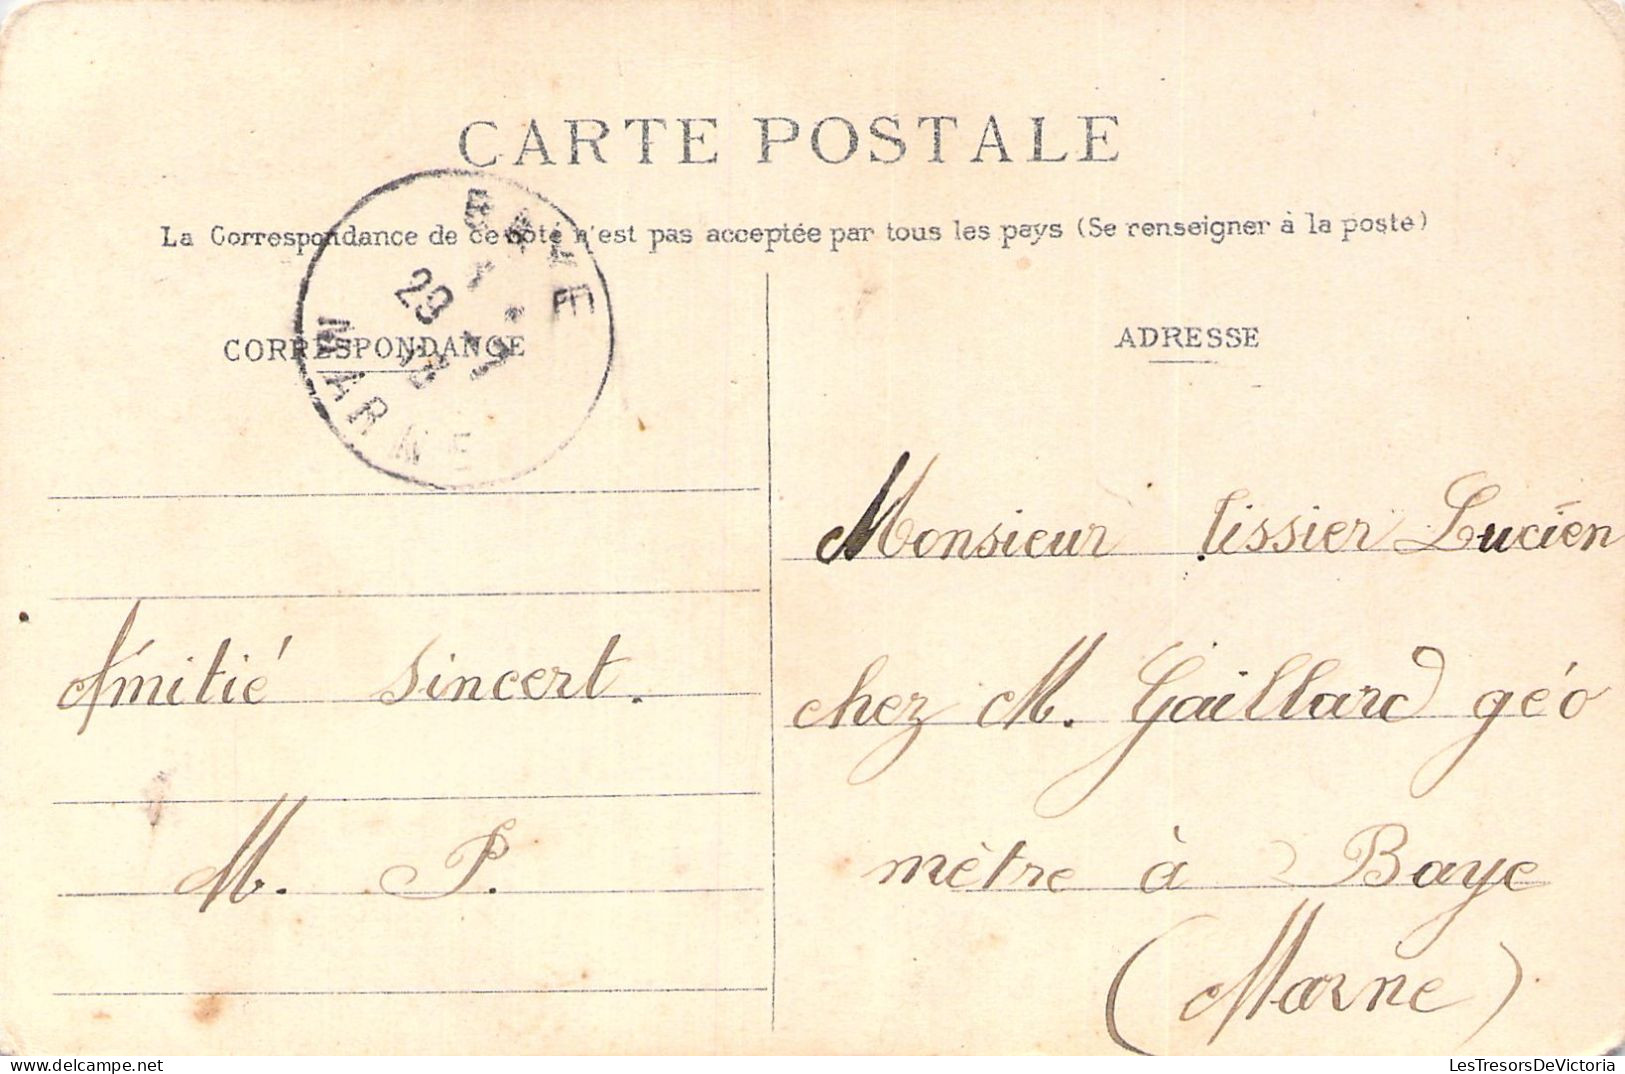 CARTE POSTALE
La Correspondance de ce côté n'est pas acceptée par tous les pays (Se renseigner à la poste)
BAYE
29
MARNE
CORRESPONDANCE
ADRESSE
Amitié sincert.
M. P.
Monsieur tissier Lucien
chez M. Gaillard géo
mètre à Baye
(Marne)
LesTresorsDeVictoria.com